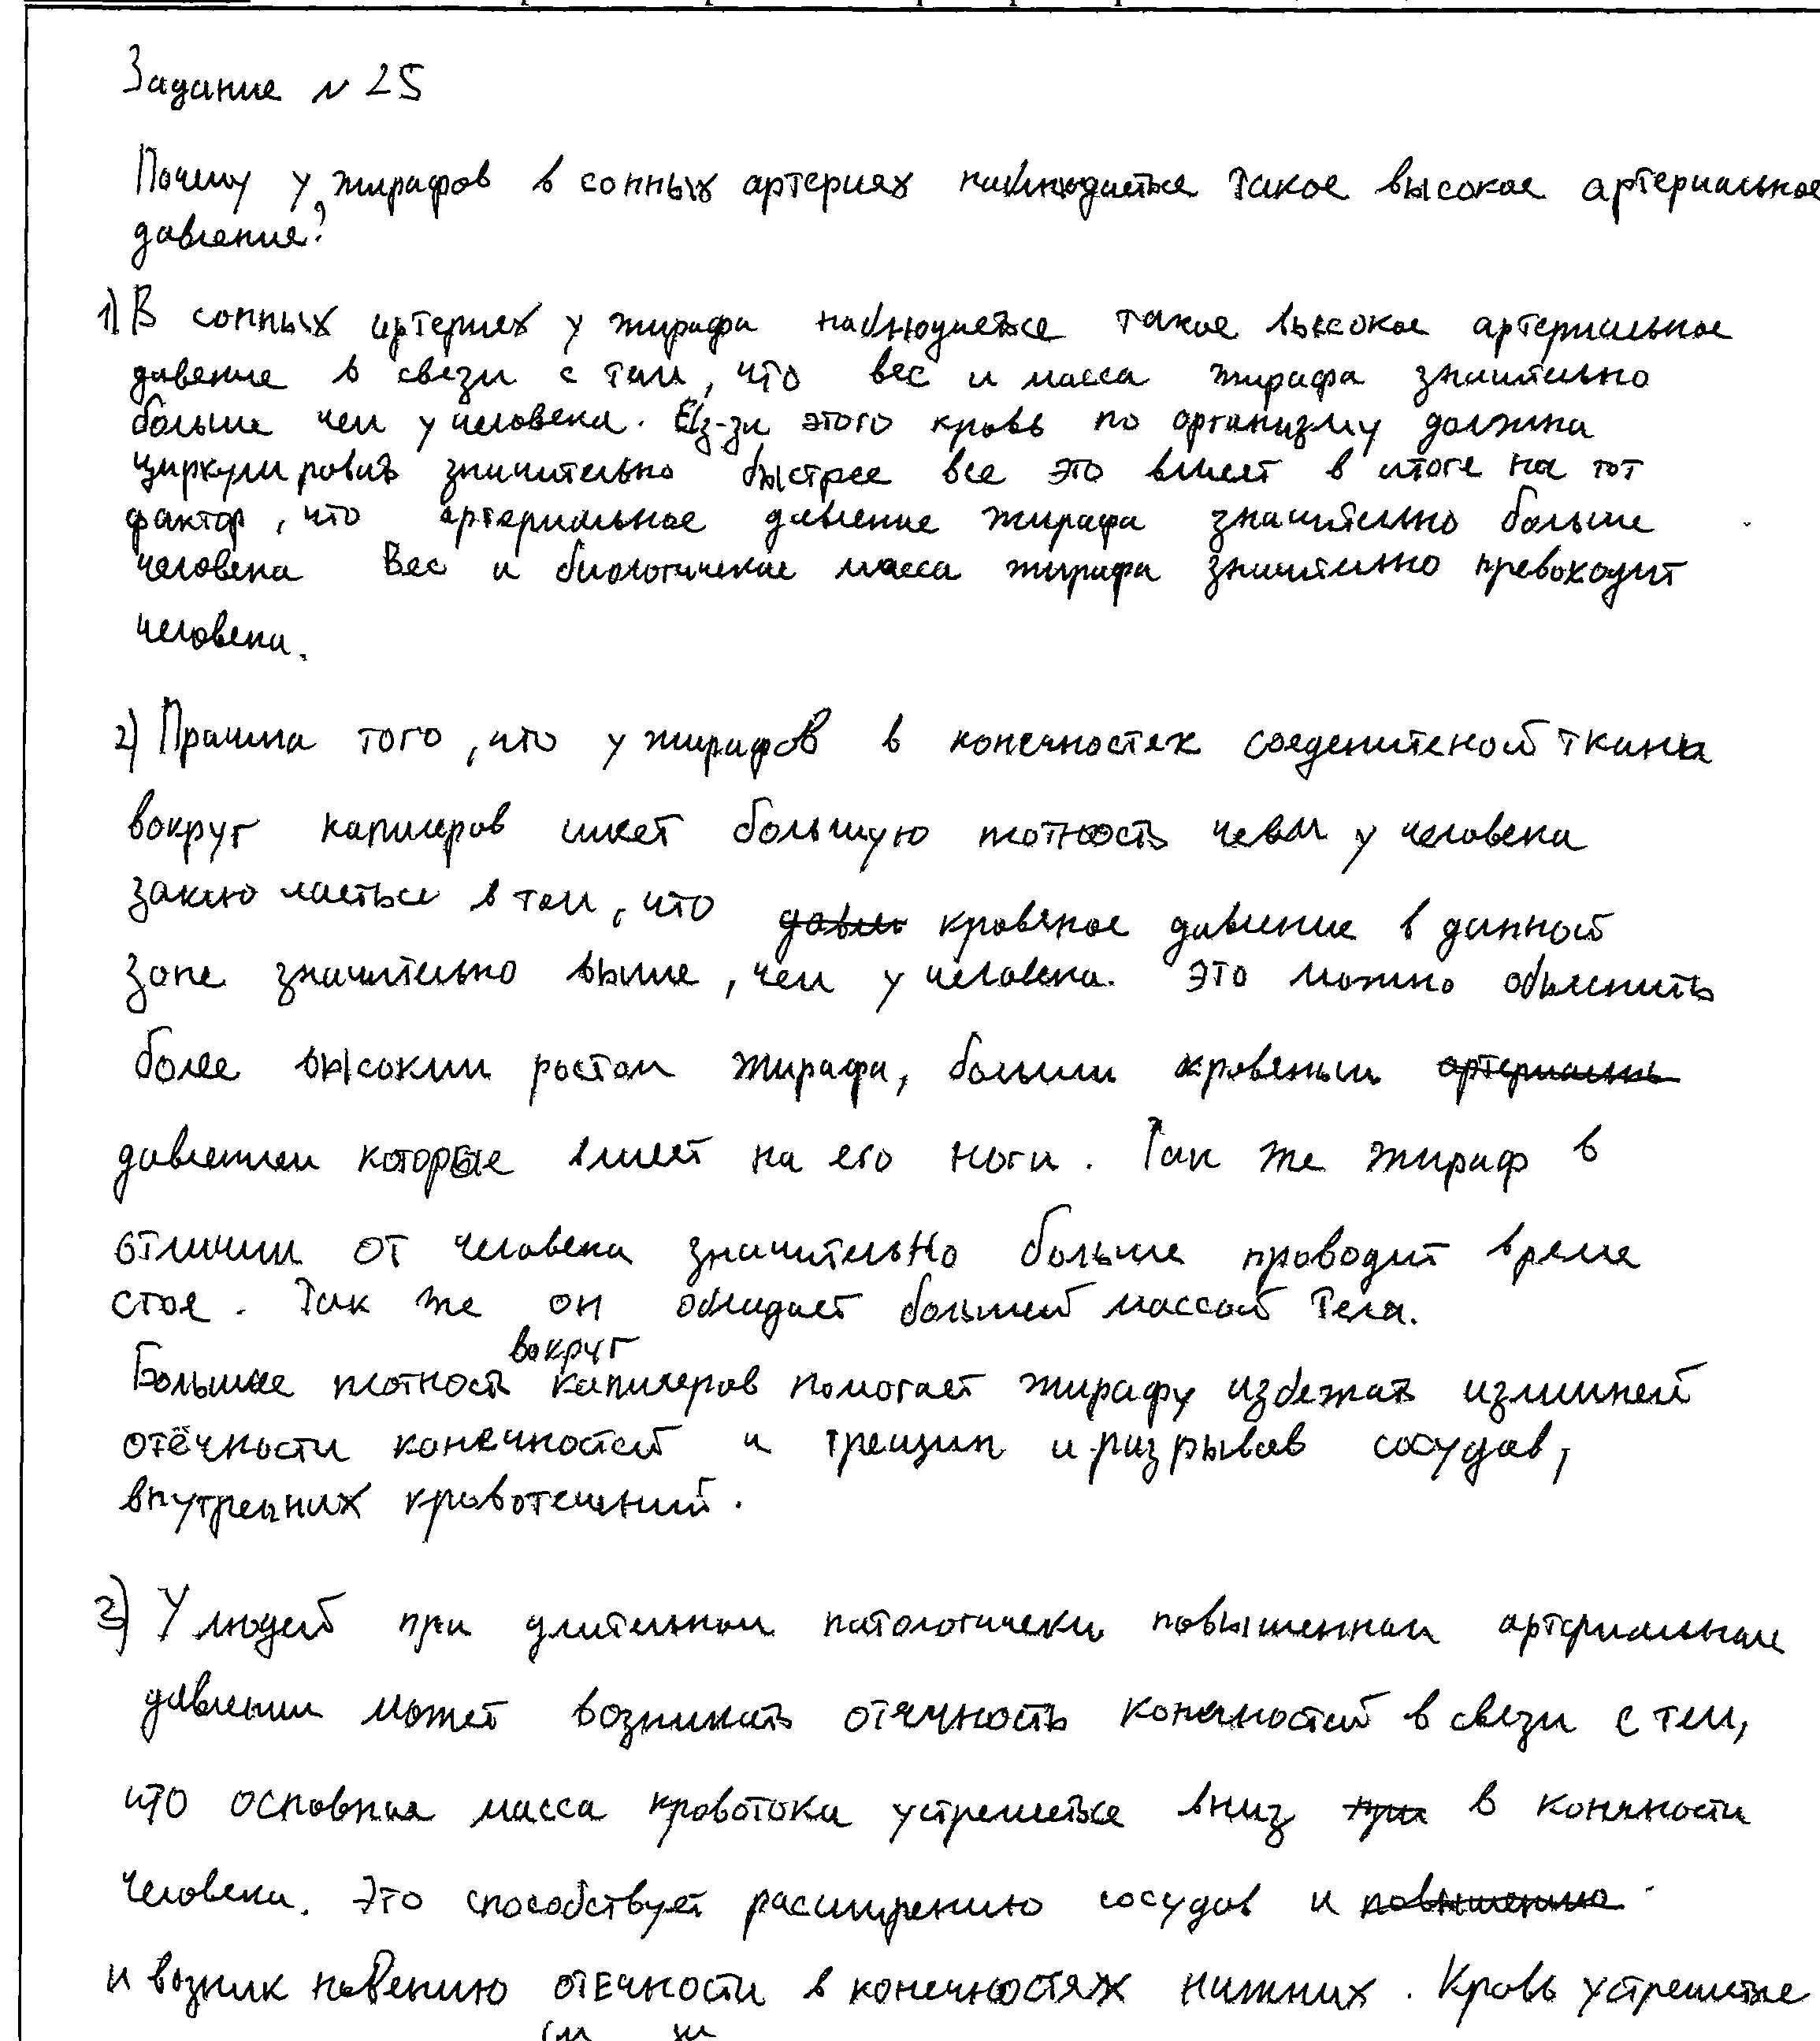 Задание N 25
Почему у жирафов в сонных артериях наблюдается такое высокое артериальное
давление?
1) В сонных артериях у жирафа наблюдается такое высокое артериальное
давление в связи с тем, что вес и масса жирафа значительно
больше чем у человека. Из-за этого кровь по организму должна
циркулировать значительно быстрее все это влияет в итоге на тот
фактор, что артериальное давление жирафа значительно больше
человека Вес и биологическая масса жирафа значительно превоходит
человека.
2) Причина того, что у жирафов в конечностях соеденитеной ткани
вокруг капиляров имеет большую плотность чем у человека
заключаеться в том, что кровяное давление в данной
зоне значительно выше, чем у человека. Это можно объяснить
более высоким ростом жирафа, большим кровяным
давлением которые влияет на его ноги. Так же жираф в
отличии от человека значительно больше проводит время
стоя. Так же он обладает большей массой тела.
Большая плотность вокруг капиляров помогает жирафу избежать излишней
отёчности конечностей и трещин и разрывов сосудов,
внутренних кровотечений.
3) У людей при длительном патологически повышенном артериальном
давлении может возникать отечность конечностей в связи с тем,
что основная масса кровотока устремляеться вниз в конечности
человека. Это способствует расширению сосудов и
и возникновению отечности в конечностях нижних. Кровь устремляетье